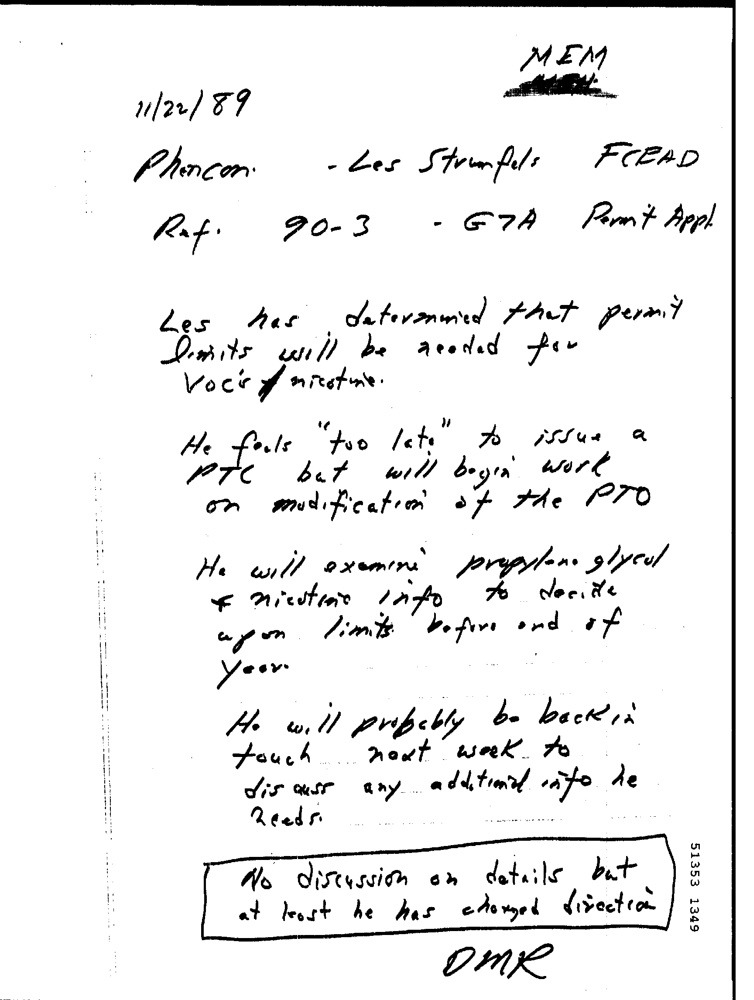 MEM
11/22/89
Phoncon. - Les Strumfels FCEAD
Ref. 90-3 - G7A Permit Appl.
Les has determined that permit
limits will be needed for
VOC's & nicotine.
He feels "too late" to issue a
PTC but will begin work
on modification of the PTO
He will examine propylene glycol
& nicotine info to decide
upon limits before end of
year.
He will probably be back in
touch next week to
discuss any additional info he
needs.
No discussion on details but
at least he has changed direction
DMR
51353 1349